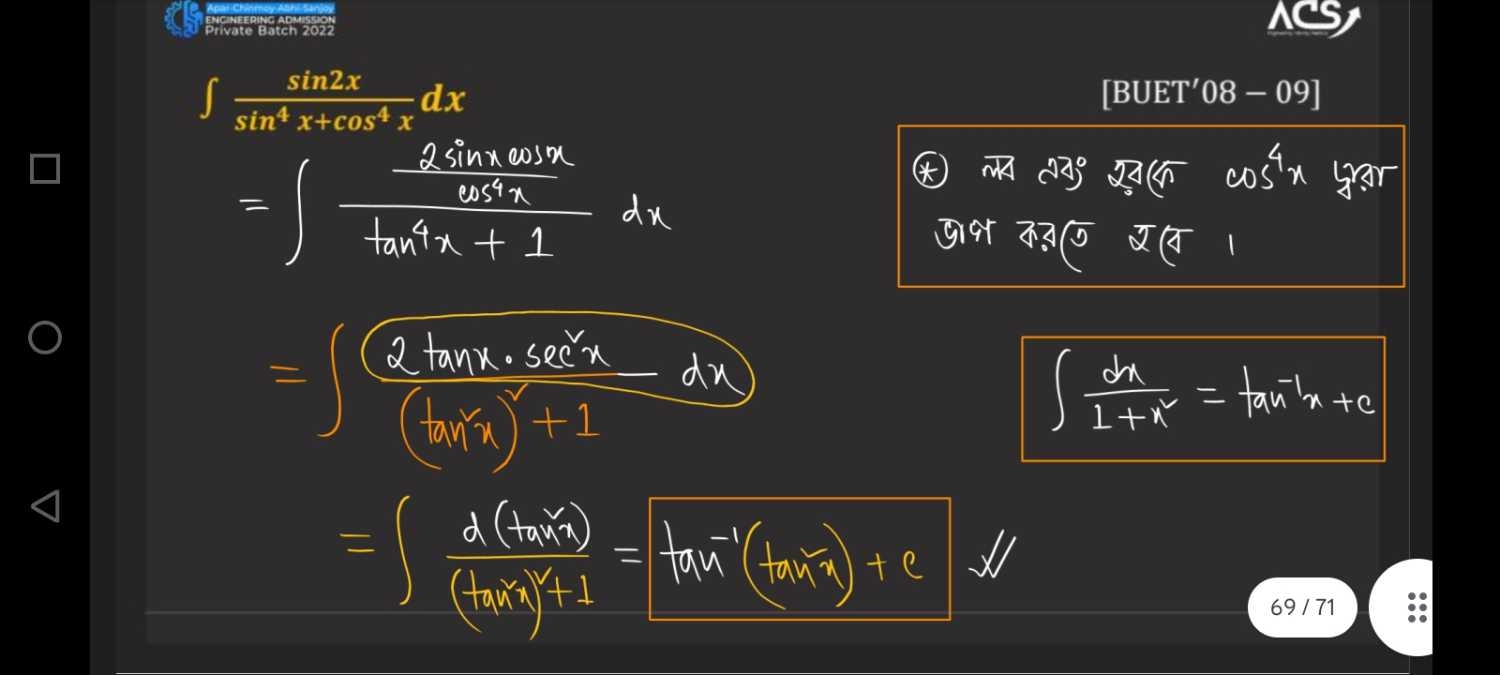 Apar-Chinmoy-Abhi-Sanjoy
ENGINEERING ADMISSION
Private Batch 2022
ACS
∫ sin2x / (sin⁴ x+cos⁴ x) dx
[BUET'08 – 09]
= ∫ (2 sinx cosx / cos⁴x) / (tan⁴x + 1) dx
⊛ লব এবং হরকে cos⁴x দ্বারা
ভাগ করতে হবে ।
= ∫ 2 tanx · sec²x / ((tan²x)² + 1) dx
∫ dx / (1+x²) = tan⁻¹x + c
= ∫ d(tan²x) / ((tan²x)² + 1) = tan⁻¹(tan²x) + c
69 / 71